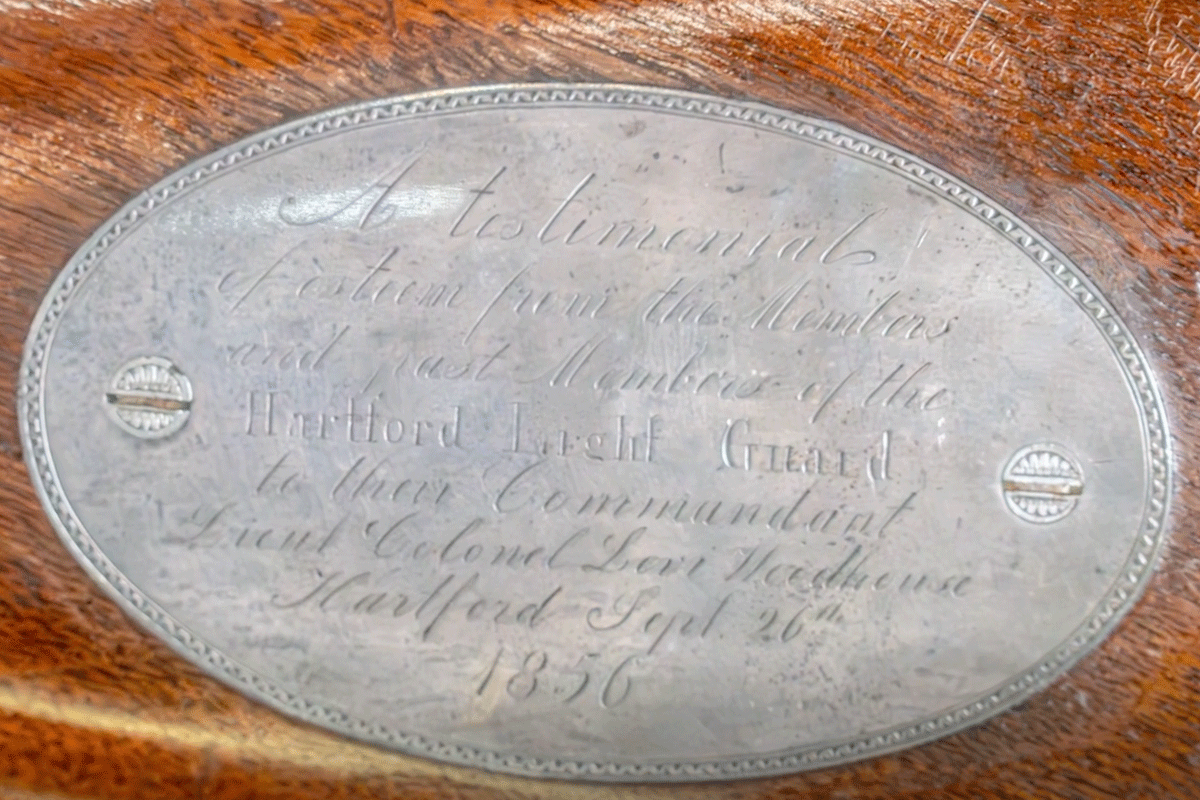 A testimonial
of esteem from the Members
and past Members of the
Hartford Light Guard
to their Commandant
Lieut Colonel Levi Woodhouse
Hartford Sept. 26th
1856